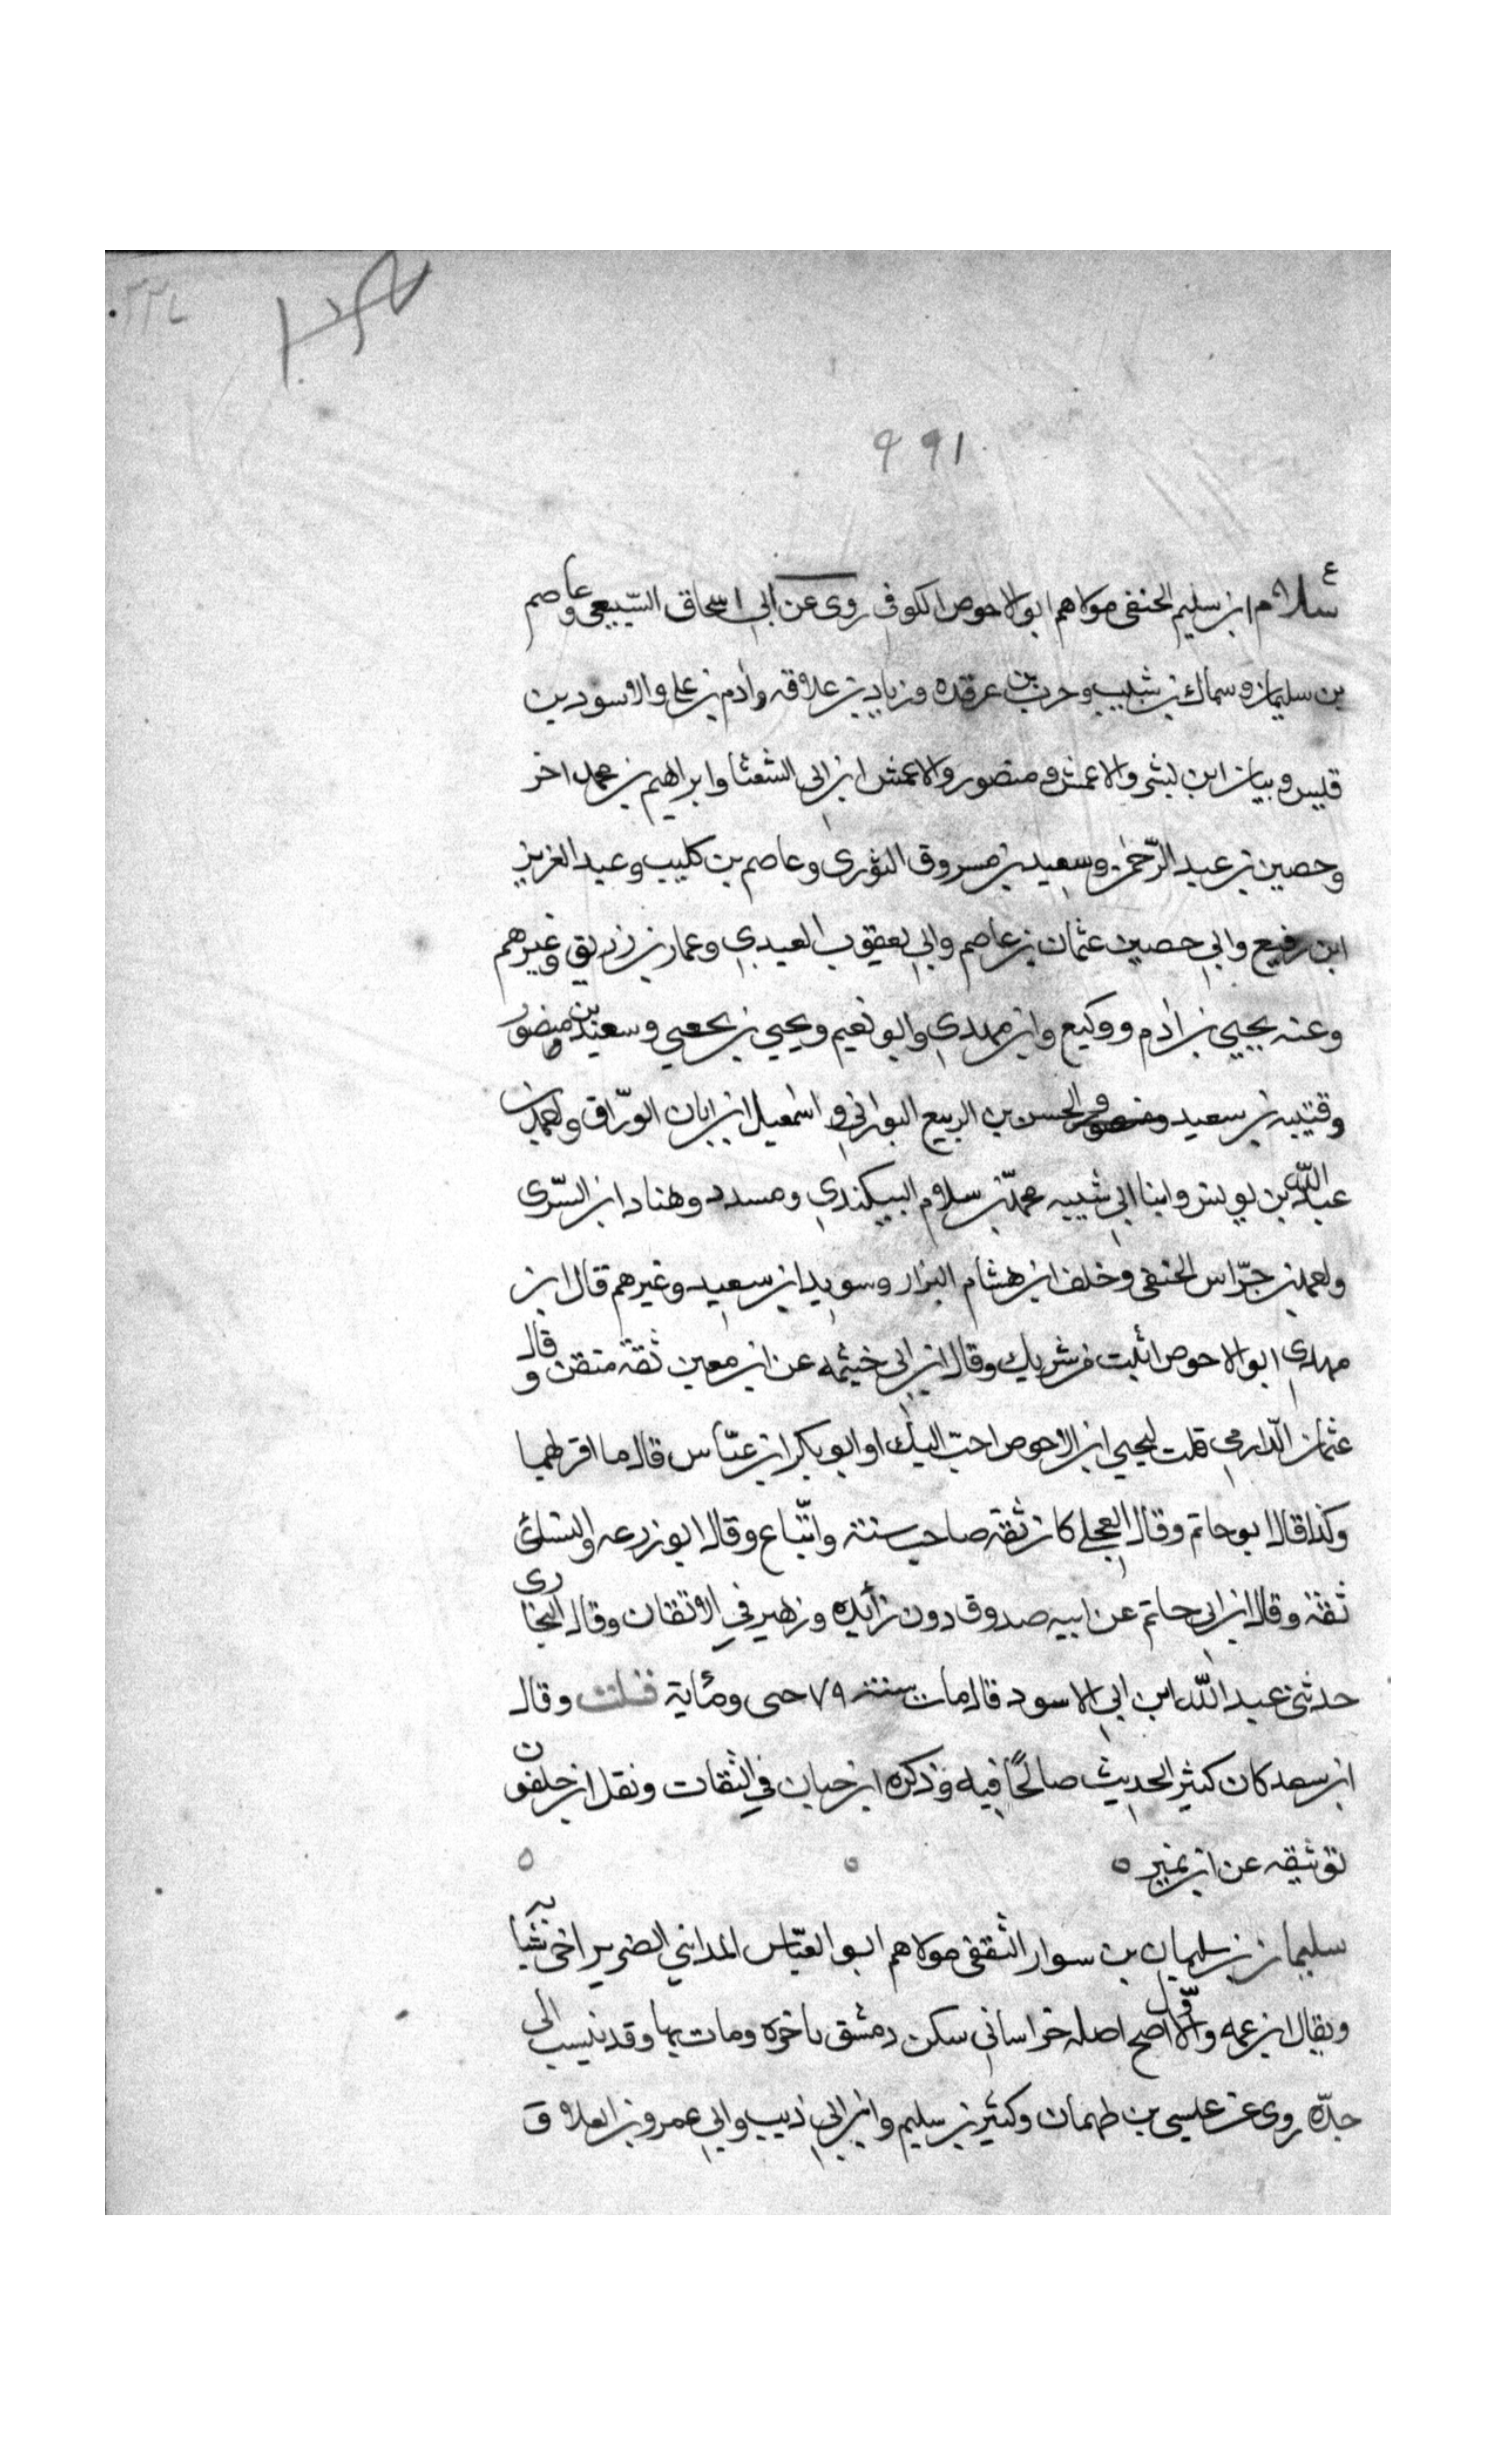 ٩٩١
ع
سلام ابن سليم الحنفى مولاهم ابو الاحوص الكوفى روى عن ابى اسحاق السّبيعى وعاصم
بن سليمان وسماك بن شبيب وحرب بن عرقده وزياد بن علاقه وادم بن على والاسود بن
قليس وبيان ابن لبشر والاعمش ومنصور والاعمش ابن ابى الشعثا وابراهيم بن محمد اخر
وحصين بن عبد الرّحمٰن وسعيد بن مسروق الثورى وعاصم بن كليب وعبد العزيز
ابن رفيع وابى حصين عثمان بن عاصم وابى يعقوب العبدى وعمار بن زريق وغيرهم
وعنه يحيى بن ادم ووكيع وابن مهدى وابو نعيم ويحيى بن يحيى وسعيد بن منصور
وقتيبه بن سعيد والحسن بن الربيع البورانى واسمعيل ابن ابان الورّاق واحمد بن
عبد اللّه بن يونس وابنا ابى شيبه محمّد بن سلام البيكندى ومسدد وهناد ابن السّرى
واحمد بن جوّاس الحنفى وخلف ابن هشام البزار وسويد ابن سعيد وغيرهم قال ابن
مهدى ابو الاحوص اثبت من شريك وقال ابن ابى خيثمه عن ابن معين ثقة متقن وقال
عثمان الدّارمى قلت ليحيى ابن الاحوص احبّ اليك او ابو بكر ابن عيّاس قال ما اقربهما
وكذا قال ابو حاتم وقال العجلى كان ثقة صاحب سنة واتّباع وقال ابو زرعه والنسائى
ثقة وقال ابن ابى حاتم عن ابيه صدوق دون زائده وزهير فى الاتقان وقال البخارى
حدثنى عبد اللّه ابن ابى الاسود قال مات سنة ٧٩ ومئاية قلت وقال
ابن سعد كان كثير الحديث صالحًا فيه وذكره ابن حبان فى الثقات ونقل ابن خلفون
توثيقه عن ابن نمير ه ه ه
سليمان بن سليمان بن سوار الثقفى مولاهم ابو العبّاس المداينى الضرير اخى شبابه
ويقال ابن عمه والاوّل اصح اصله خراسانى سكن دمشق باخره ومات بها وقد ينسب الى
جدّه روى عن عيسى بن طهمان وكثير بن سليم وابن ابى ذيب وابى عمرو بن العلا و